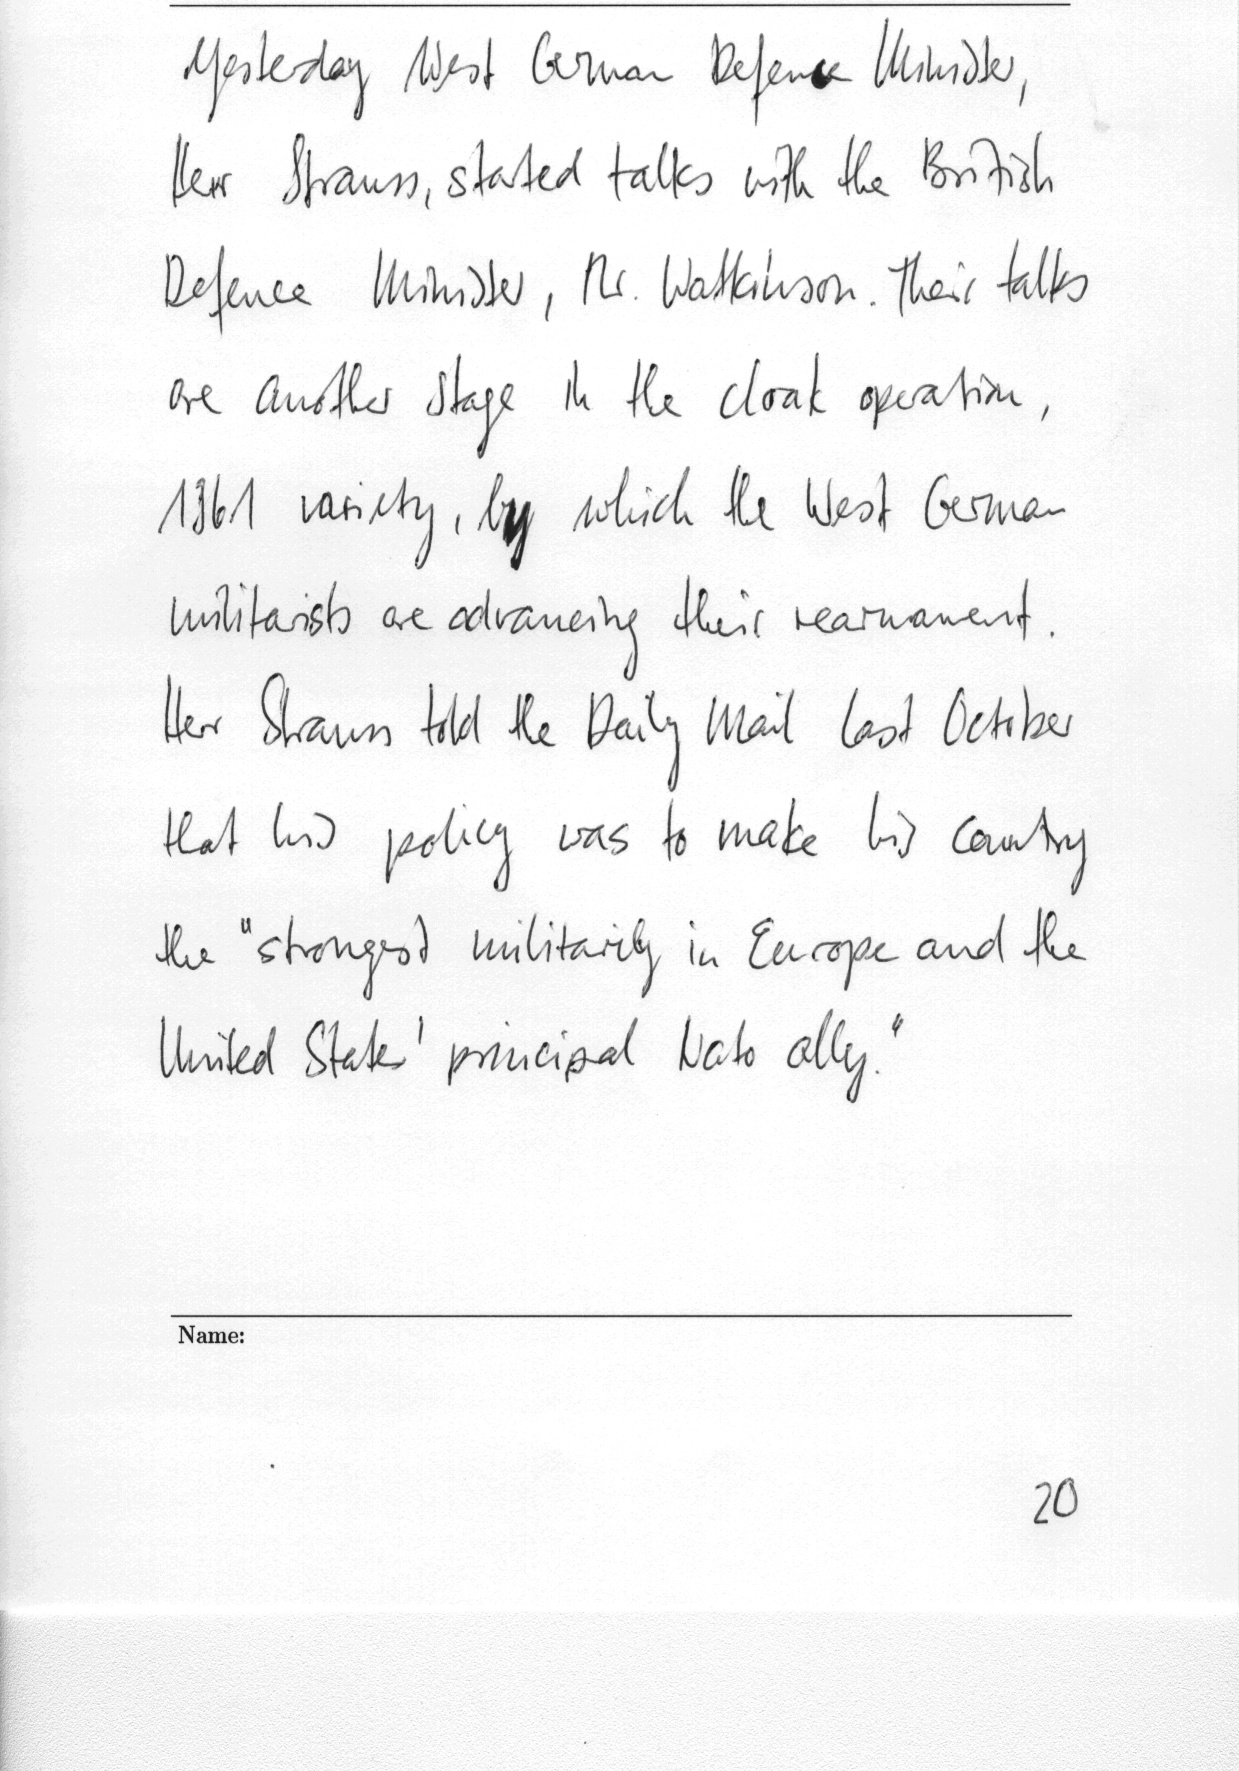 Yesterday West German Defence Minister,
Herr Strauss, started talks with the British
Defence Minister, Mr. Watkinson. Their talks
are another stage in the cloak operation,
1961 variety, by which the West German
militarists are advancing their rearmament.
Herr Strauss told the Daily Mail last October
that his policy was to make his country
the "strongest militarily in Europe and the
United States' principal Nato ally."
Name:
20